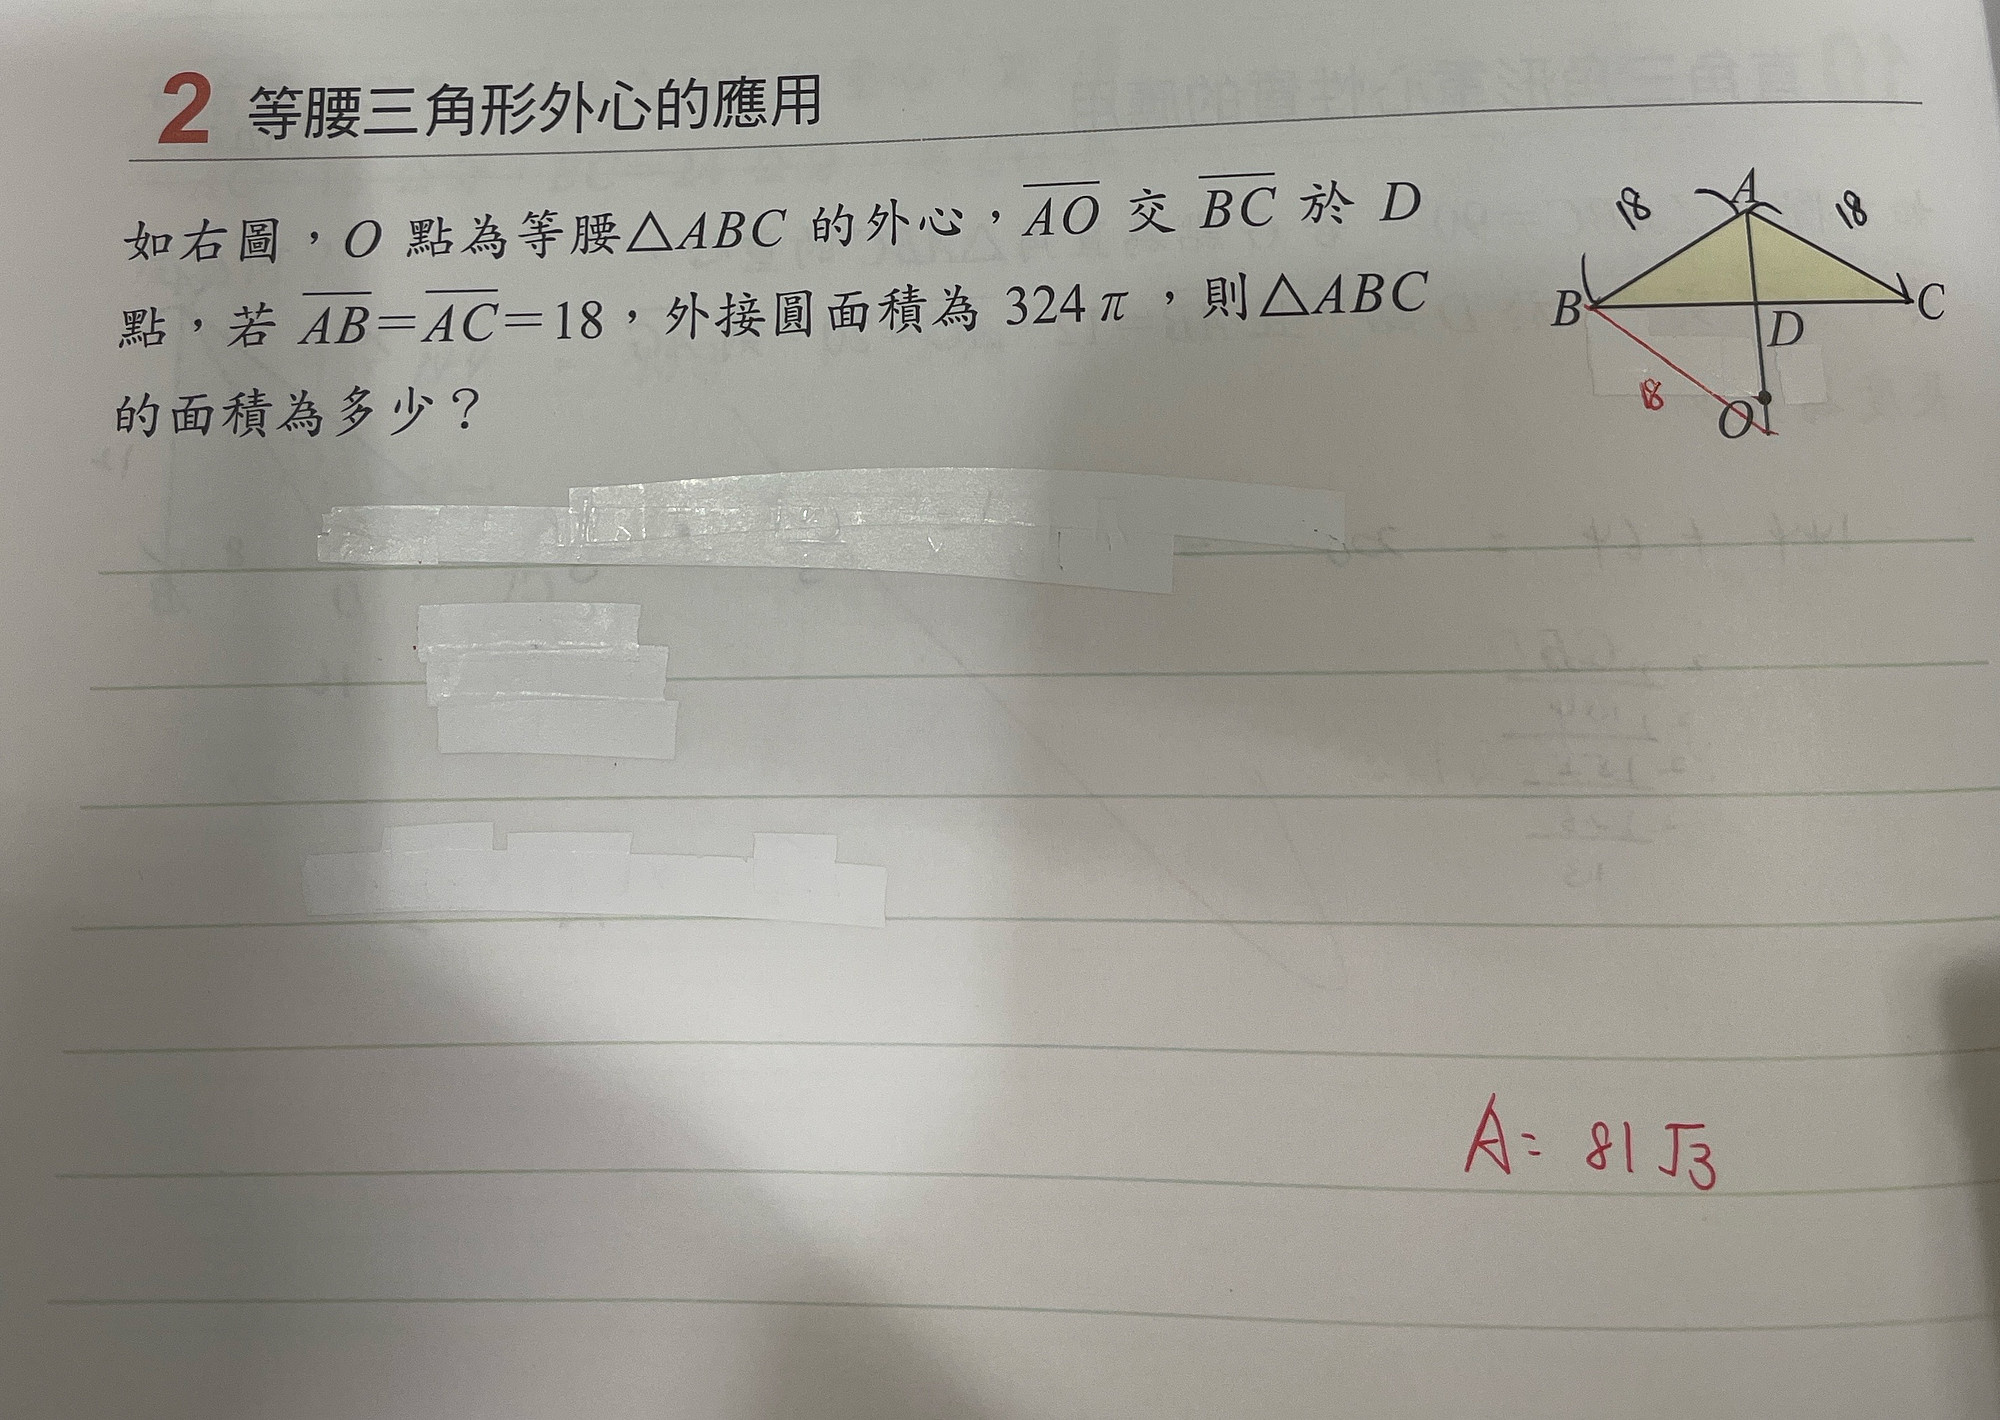 2 等腰三角形外心的應用
如右圖，O 點為等腰△ABC 的外心，AO 交 BC 於 D
點，若 AB=AC=18，外接圓面積為 324π，則△ABC
的面積為多少？
A
18
18
B
C
D
18
O
A= 81√3